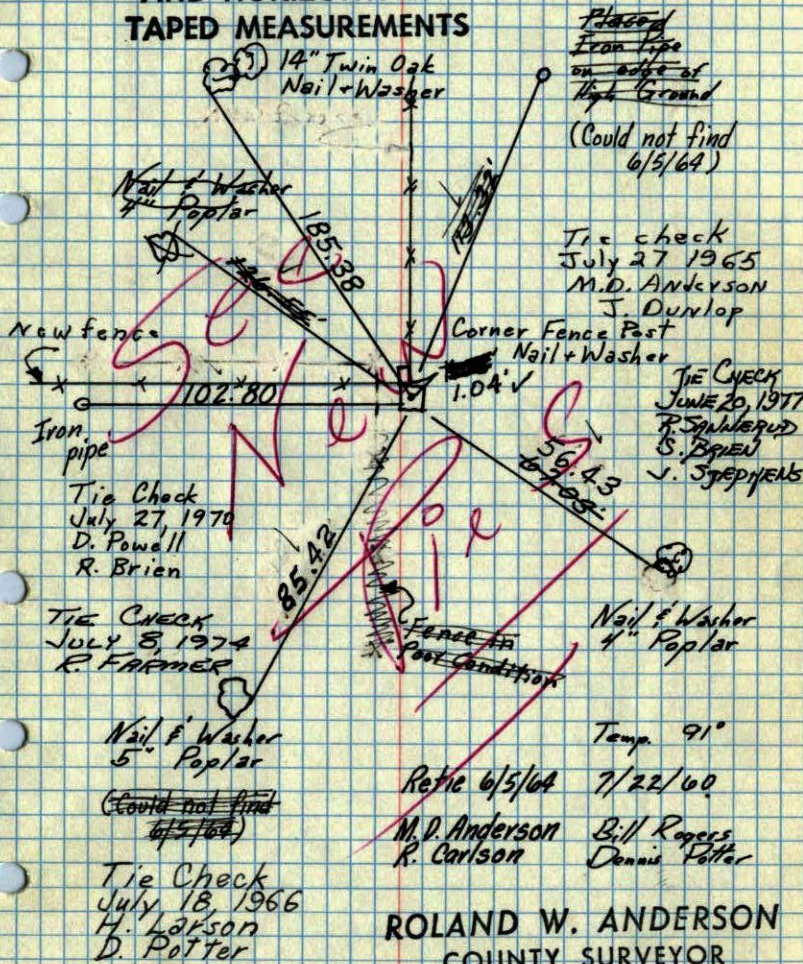 AND HORIZON
TAPED MEASUREMENTS
14" Twin Oak
Nail + Washer
Placed
Iron Pipe
on edge of
High Ground
(Could not find
6/5/64)
Nail & Washer
4" Poplar
185.38
Tie check
July 27 1965
M.D. Anderson
J. Dunlop
New fence
Corner Fence Post
Nail + Washer
1.04' ✓
102.80
Iron
pipe
TIE CHECK
JUNE 20, 1977
R. SANNERUD
S. BRIEN
J. STEPHENS
See
New
Pies
56.43
67.03'
Tie Check
July 27, 1970
D. Powell
R. Brien
85.42
TIE CHECK
JULY 8, 1974
R. FARMER
Fence in
Poor Condition
Nail & Washer
4" Poplar
Nail & Washer
5" Poplar
(Could not find
6/5/64)
Temp. 91°
Retie 6/5/64
7/22/60
M.D. Anderson
R. Carlson
Bill Rogers
Dennis Potter
Tie Check
July 18, 1966
H. Larson
D. Potter
ROLAND W. ANDERSON
COUNTY SURVEYOR